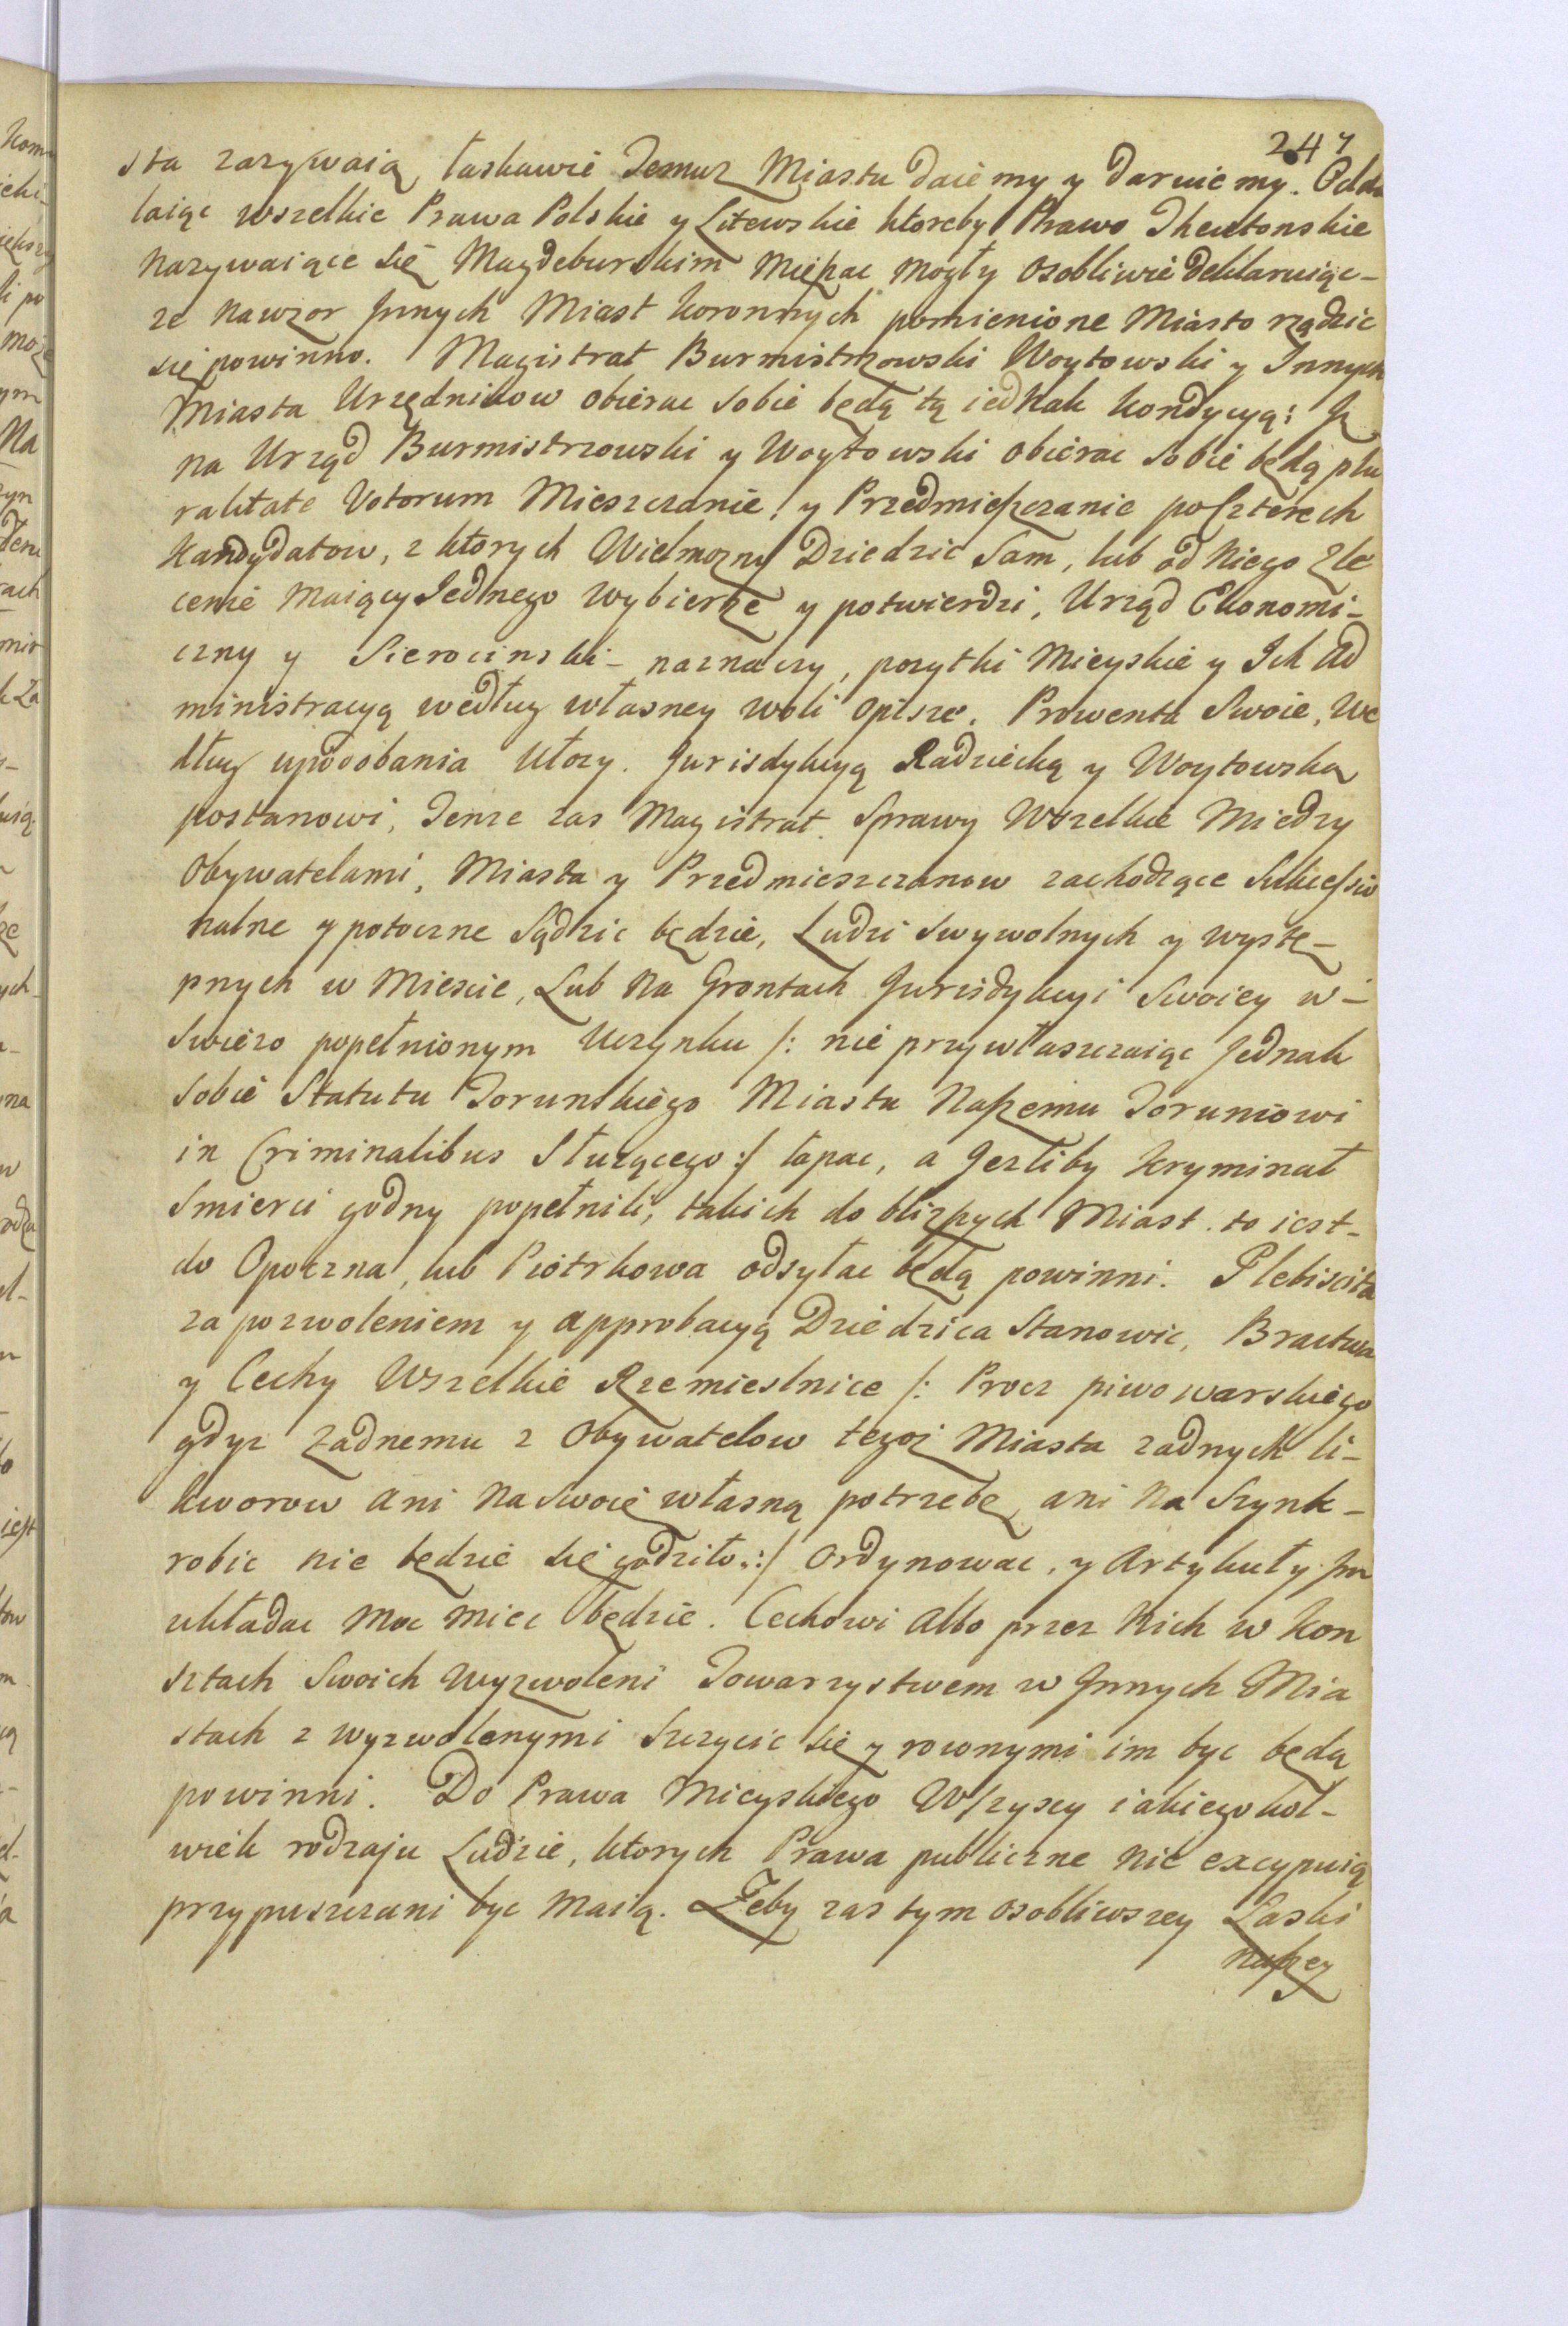 247
sta zazywaią, łaskawie Temuz Miastu daiemy y daruiemy. Odda
laiąc wszelkie Prawa Polskie y Litewskie ktoreby Prawo Theutonskie
Nazywaiące się Magdeburskim Mięszac mogły osobliwie deklaruiąc -
ze nawzor Innych Miast koronnych pomienione Miasto rządzic
się powinno. Magistrat Burmistrzowski Woytowski y Innych
Miasta Urzędnikow obierac sobie będą tą iednak kondycyą: Iz
na Urząd Burmistrzowski y Woytowski obierac sobie będą plu
ralitate Votorum Mieszczanie, y Przedmieszczanie po Czterech
Kandydatow, z ktorych Wielmozny Dziedzic Sam, lub od Niego Zle
cenie maiący Jednego wybierze y potwierdzi, Urząd Ekonomi-
czny y Sierocinski - naznaczy, pozytki Mieyskie y Ich Ad
ministracyą według własney woli opisze. Prowenta Swoie, we
dług upodobania Ułozy. Jurisdykcyą Radziecką y Woytowską
postanowi, Tenze zas Magistrat Sprawy Wszelkie Miedzy
Obywatelami, Miasta y Przedmieszczanow zachodzące Sukcessio
nalne y potoczne Sądzic będzie, Ludzi Swywolnych y wystę-
pnych w Miescie, Lub na Grontach Jurisdykcyi Swoiey w -
Swiezo popełnionym Uczynku /: nie przywłaszczaiąc Jednak
Sobie Statutu Torunskiego Miastu Naszemu Toruniowi
in Criminalibus Słuzącego :/ łapac, a Jezliby kryminał
Smierci godny popełnili, takich do blizszych Miast to iest -
do Opoczna, lub Piotrkowa odsyłac będą powinni. Plebiscita
za pozwoleniem y approbacyą Dziedzica Stanowic, Bractwa
y Cechy Wszelkie Rzemieslnice /: Procz piwowarskiego
gdyz zadnemu z Obywatelow tegoz Miasta zadnych li-
kworow ani na Swoię własną potrzebę, ani na Szynk -
robic nie będzie się godziło :/ Ordynowac, y Artykuły Im
układac moc miec będzie. Cechowi albo przez Nich w kon
sztach Swoich Wyzwoleni Towarzystwem w Innych Mia
stach z wyzwolenymi Szczycic się y rownymi im byc będą
powinni. Do Prawa Mieyskiego Wszyscy iakiegokol-
wiek rodzaju Ludzie, ktorych Prawa publiczne nie excypuią
przypuszczani byc maią. Zeby zas tym osobliwszey Łaski
Naszey